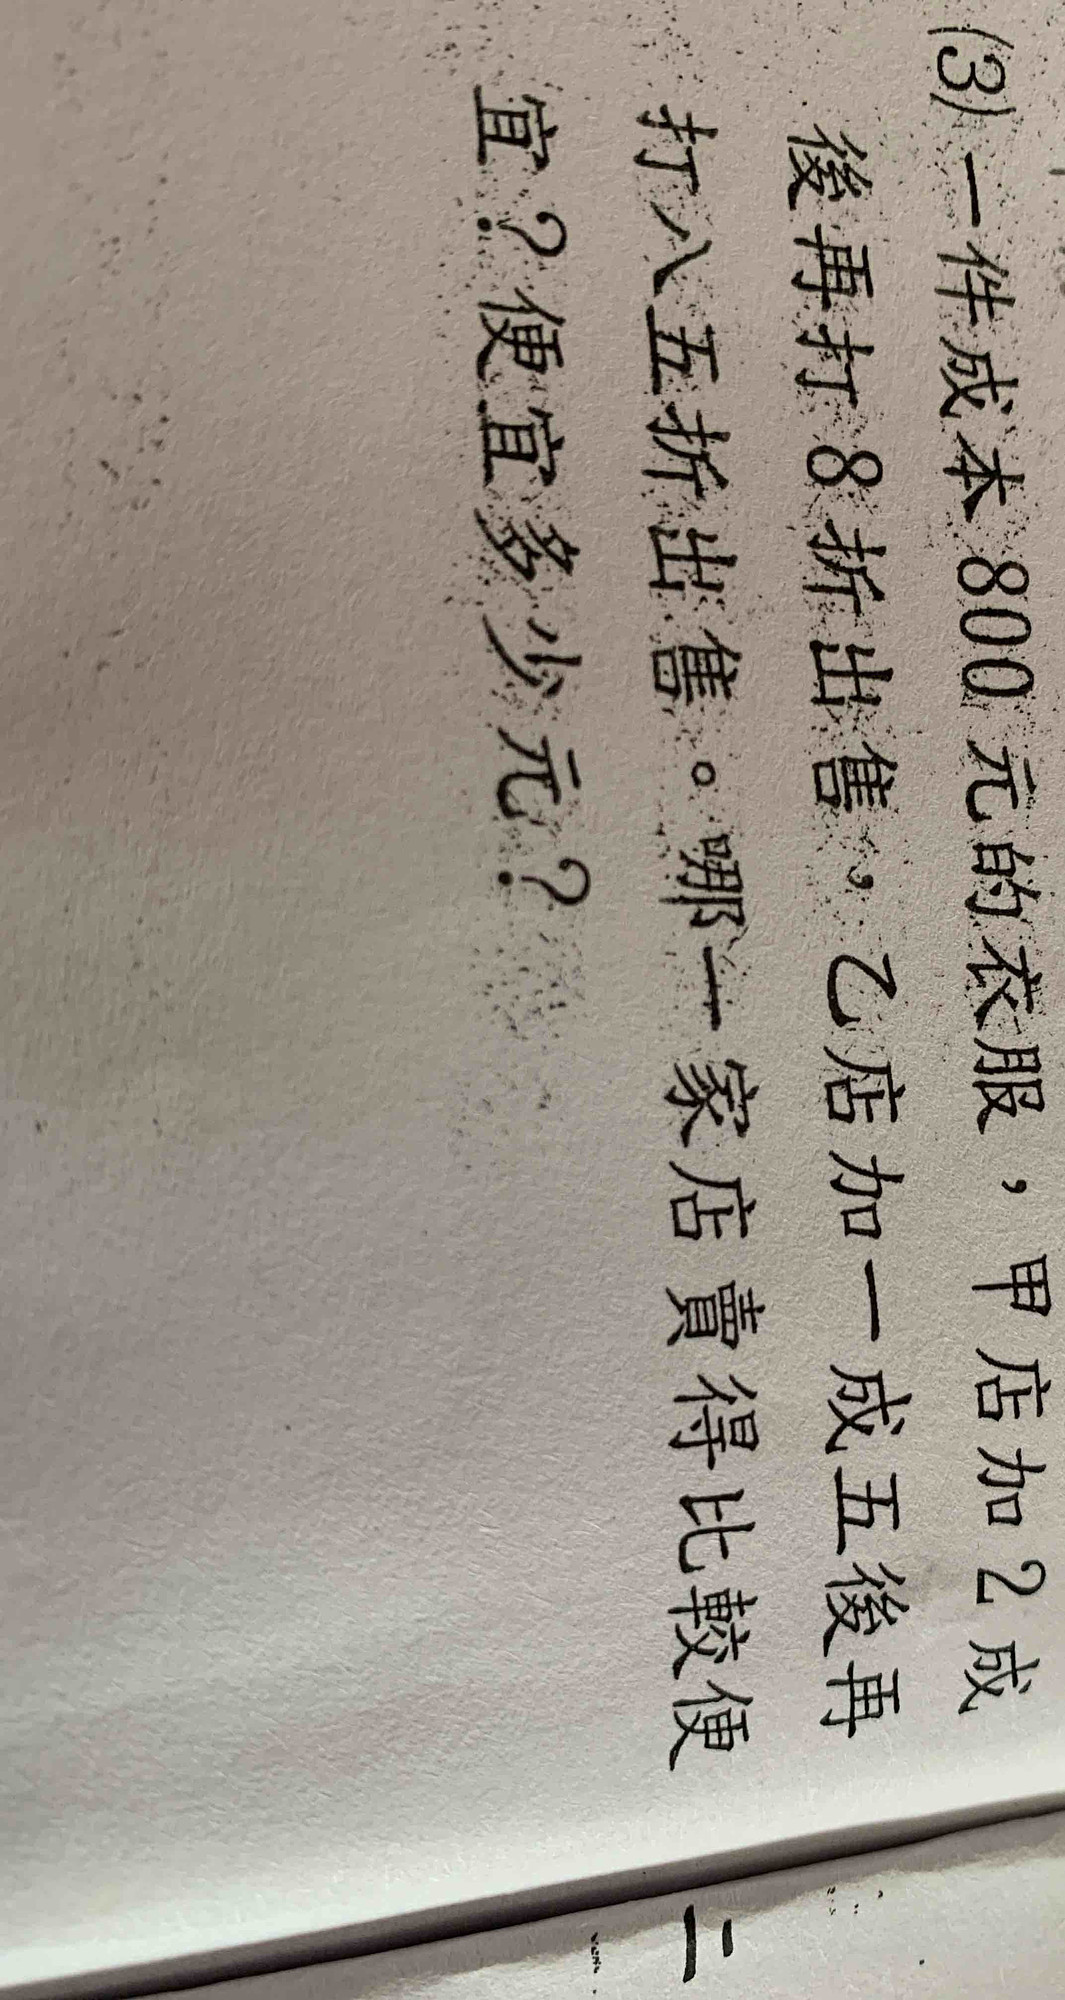 (3)一件成本800元的衣服，甲店加2成
後再打8折出售，乙店加一成五後再
打八五折出售。哪一家店賣得比較便
宜？便宜多少元？
二